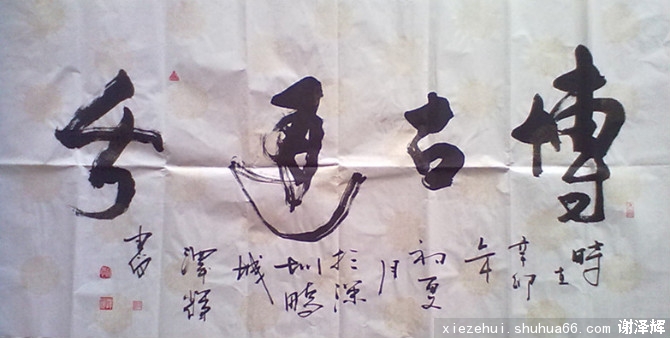 博古通今
時在
辛卯
年
初夏
月
於深
圳鵬
城
澤輝
書
xiezehui.shuhua66.com 谢泽辉